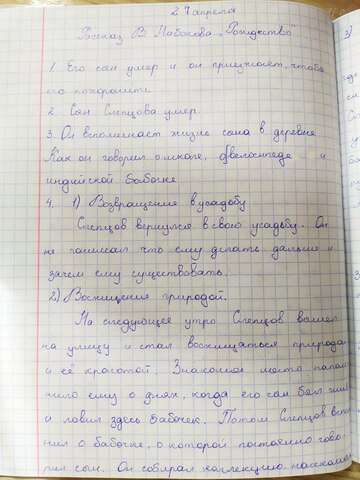 27 апреля
Рассказ В. Набокова "Рождество"
1. Его сын умер и он приезжает, чтобы
его похоронить
2. Сын Слепцова умер
3. Он вспоминает жизнь сына в деревне
Как он говорил о школе, о велосипеде и
индийской бабочке
4. 1) Возвращение в усадьбу
Слепцов вернулся в свою усадьбу. Он
не понимал что ему делать дальше и
зачем ему существовать.
2) Восхищение природой.
На следующее утро Слепцов вышел
на улицу и стал восхищаться природой
и её красотой. Знакомое место напом-
нило ему о днях, когда его сын был жив
и ловил здесь бабочек. Потом Слепцов вспом
нил о бабочке, о которой постоянно гово-
рил сын. Он собирал коллекцию насекомых
3)